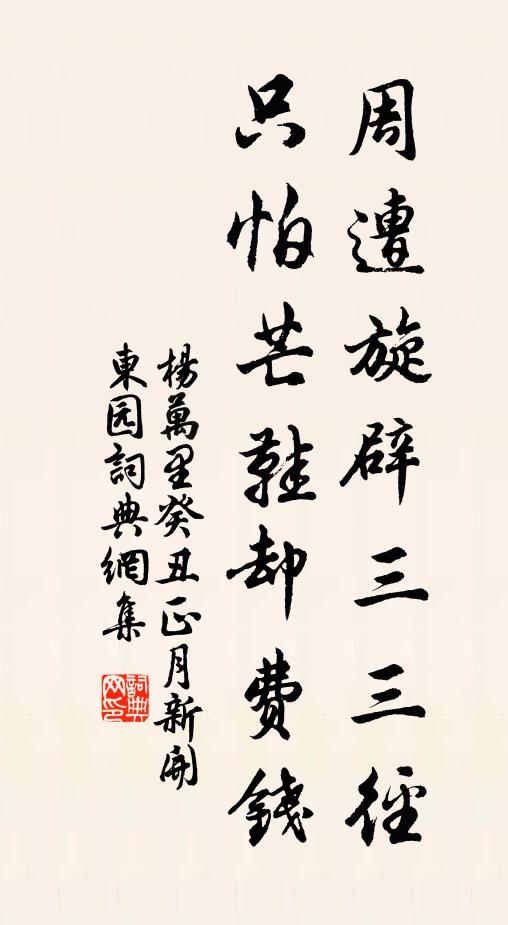 周遭旋辟三三徑
只怕芒鞋却費錢
楊萬里癸丑正月新開
東园詞典網集
詞典网印